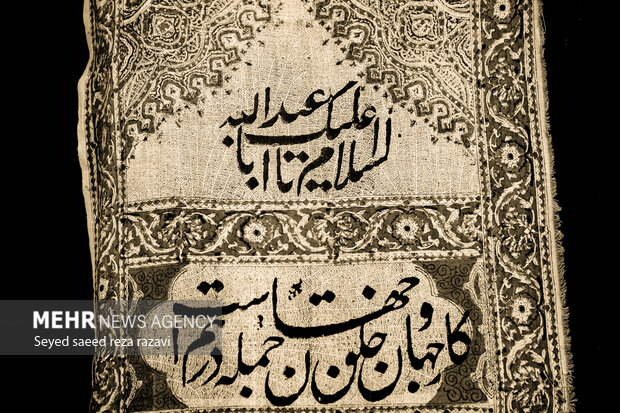 السلام علیک یا ابا عبدالله
کار جهان و خلق جهان جمله درهم است
MEHR NEWS AGENCY
Seyed saeed reza razavi